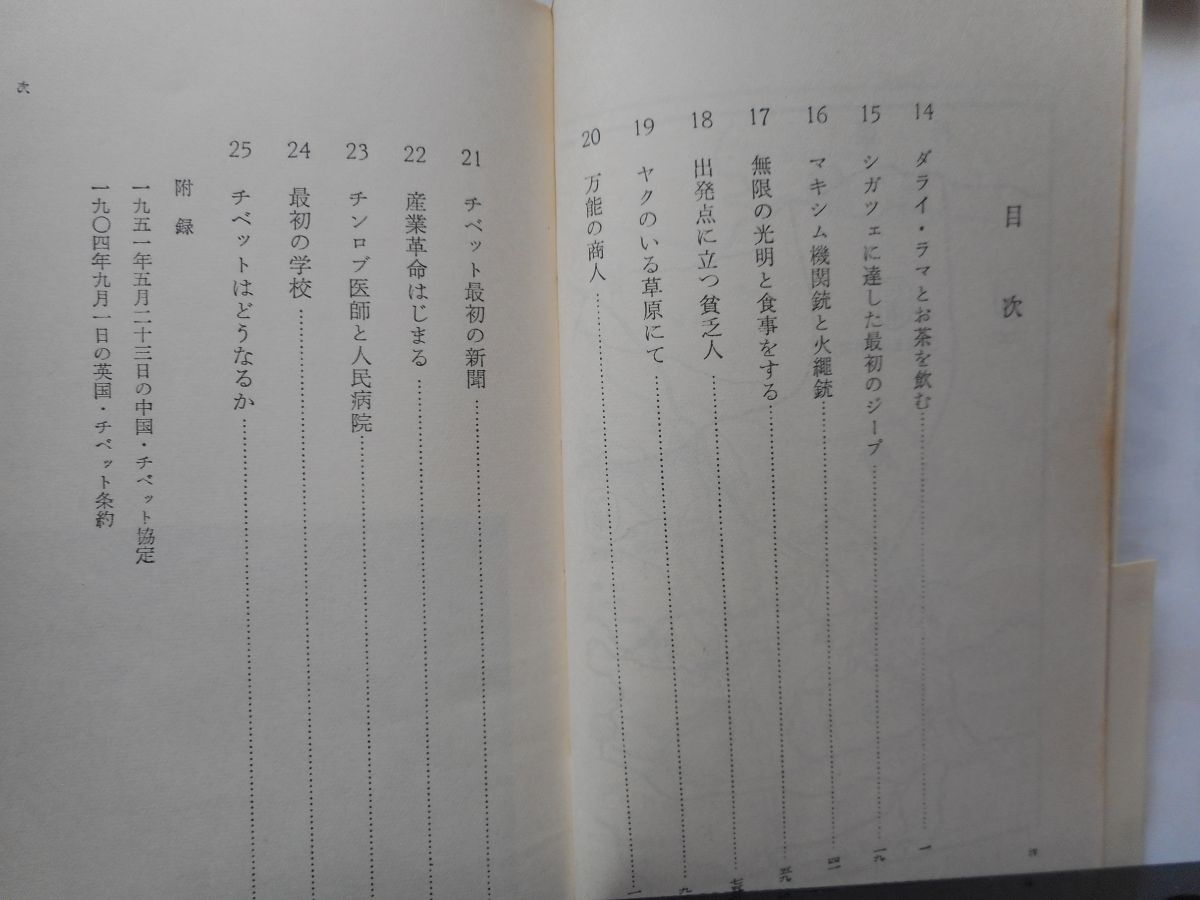 目次
14 ダライ・ラマとお茶を飲む……一
15 シガツェに達した最初のジープ……一九
16 マキシム機関銃と火縄銃……四一
17 無限の光明と食事をする……五九
18 出発点に立つ貧乏人……七
19 ヤクのいる草原にて……九
20 万能の商人……一
21 チベット最初の新聞
22 産業革命はじまる
23 チンロブ医師と人民病院
24 最初の学校
25 チベットはどうなるか
附録
一九五一年五月二十三日の中国・チベット協定
一九〇四年九月一日の英国・チベット条約
次